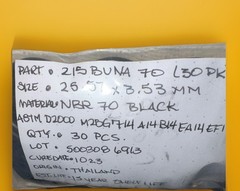 PART : 215 BUNA 70 L30 PK
SIZE : 26.57 x 3.53 MM
MATERIAL: NBR 70 BLACK
ASTM D2000 M2BG714 A14 B14 EA14 EF11
QTY : 30 PCS.
LOT : 500308 6913
CURE DATE : 1Q23
ORIGIN : THAILAND
15 YEAR SHELF LIFE